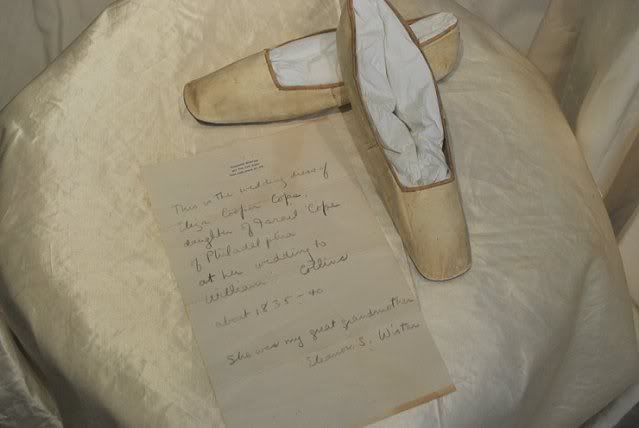 This is the wedding dress of
Eliza Cooper Cope,
daughter of Israel Cope
of Philadelphia
at her wedding to
William Collins
about 1835-40
She was my great grandmother
Eleanor S. Wister